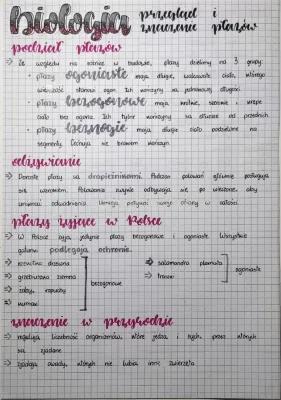 Biologia przegląd i
znaczenie płazów
podział płazów
⇒ Ze względu na różnice w budowie, płazy dzielimy na 3 grupy:
• płazy ogoniaste mają długie, walcowate ciało, którego
większość stanowi ogon. Ich kończyny są jednakowej długości.
• płazy bezogonowe mają krótkie, szerokie i krępe
ciało bez ogona. Ich tylne kończyny są dłuższe od przednich.
• płazy beznogie mają długie ciało podzielone na
segmenty. Cechują się brakiem kończyn.
odżywianie
⇒ Dorosłe płazy są drapieżnikami. Podczas polowań głównie posługują
się wzrokiem. Polowania zwykle odbywają się po zmroku, aby
uniknąć odwodnienia. połykają swoje ofiary w całości.
płazy żyjące w Polsce
⇒ W Polsce żyją jedynie płazy bezogonowe i ogoniaste. Wszystkie
gatunki podlegają ochronie.
⇒ rzekotka drzewna
⇒ grzebiuszka ziemna
⇒ żaby, ropuchy
⇒ kumaki
bezogonowe
⇒ salamandra plamista
⇒ traszki
ogoniaste
znaczenie w przyrodzie
⇒ regulują liczebność organizmów, które jedzą i tych, przez których
są zjadane
⇒ zjadają owady, których nie lubią inne zwierzęta